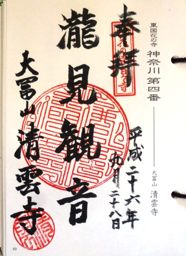 東国花の寺 神奈川第四番 ―― 大冨山 清雲寺
奉拝
平成二十六年
九月二十八日
瀧見観音
大冨山 清雲寺